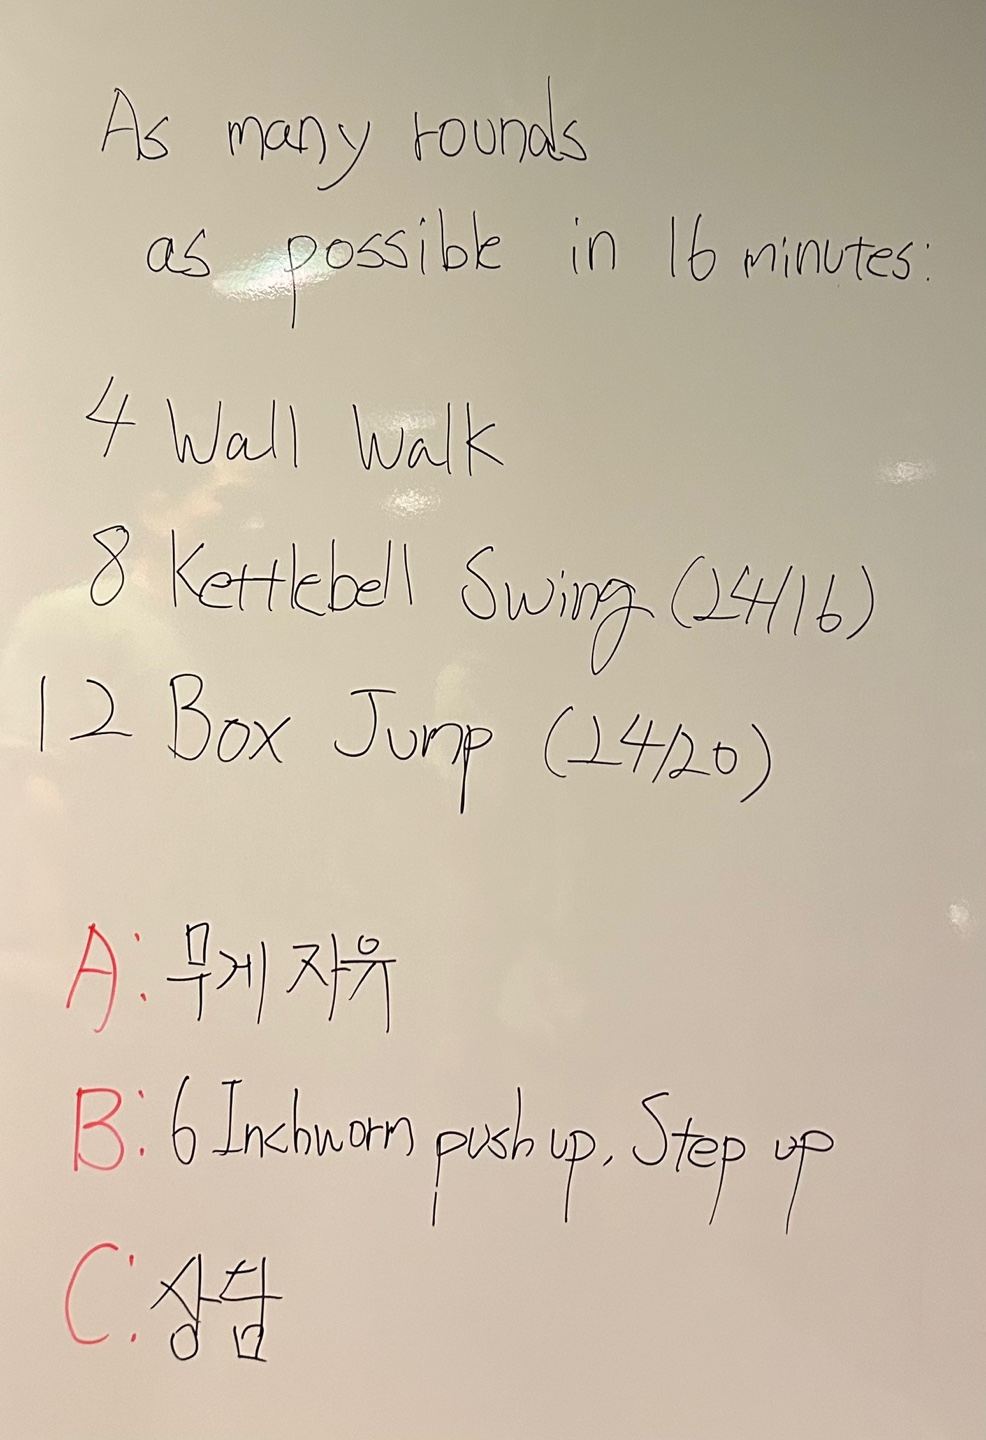 As many rounds
as possible in 16 minutes:
4 Wall Walk
8 Kettlebell Swing (24/16)
12 Box Jump (24/20)
A: 무게 자유
B: 6 Inchworm push up, Step up
C: 상담